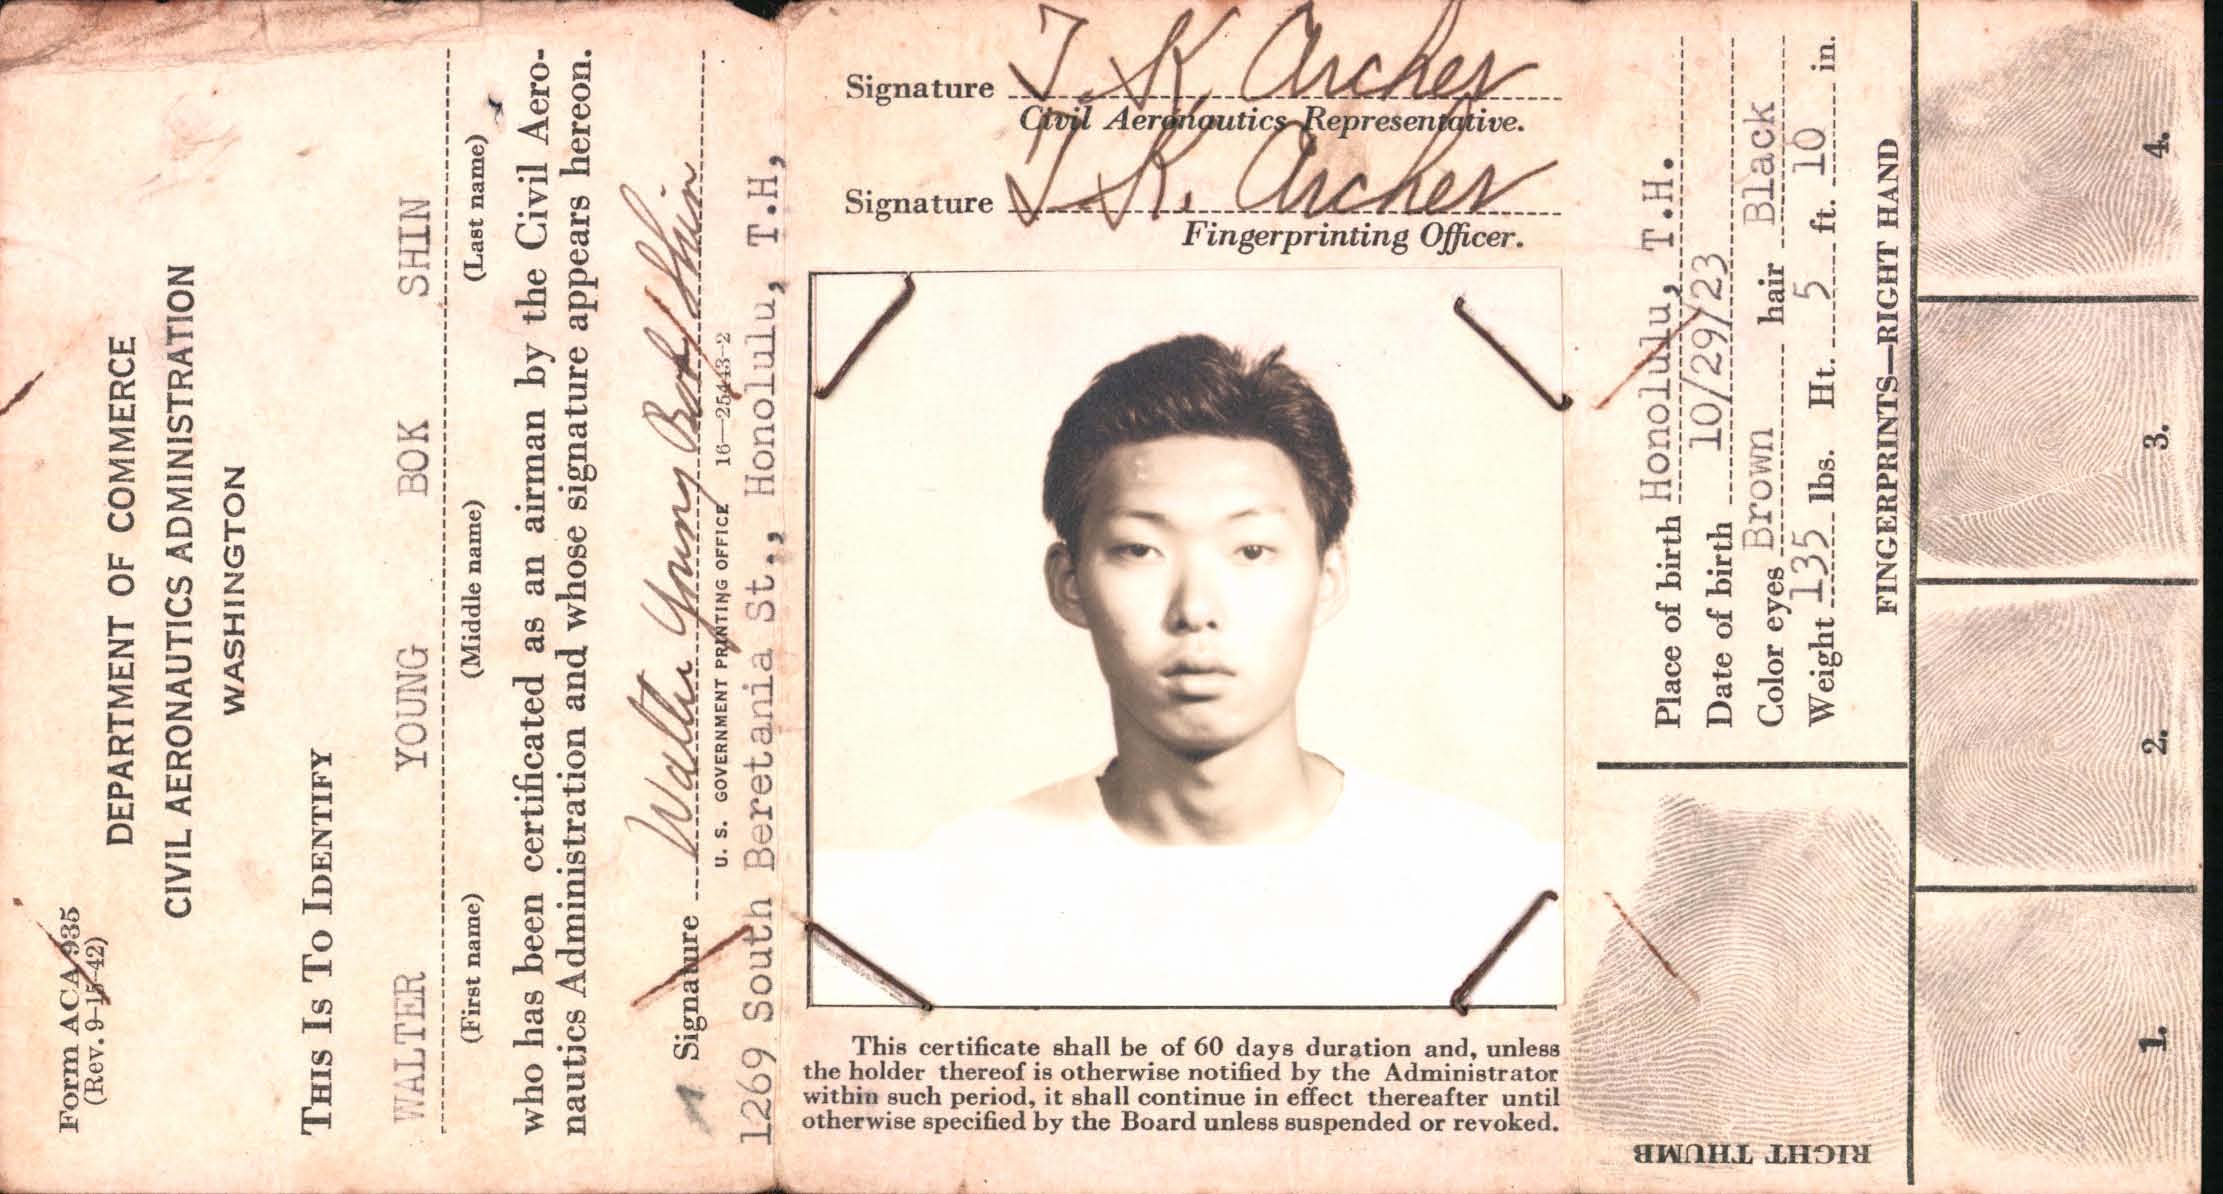 Form ACA 935
(Rev. 9-15-42)
DEPARTMENT OF COMMERCE
CIVIL AERONAUTICS ADMINISTRATION
WASHINGTON
THIS IS TO IDENTIFY
WALTER YOUNG BOK SHIN
(First name) (Middle name) (Last name)
who has been certificated as an airman by the Civil Aero-
nautics Administration and whose signature appears hereon.
Signature Walter Young Bok Shin
U. S. GOVERNMENT PRINTING OFFICE 16—25443-2
1269 South Beretania St., Honolulu, T.H,
Signature T. K. Archer
Civil Aeronautics Representative.
Signature T. K. Archer
Fingerprinting Officer.
This certificate shall be of 60 days duration and, unless
the holder thereof is otherwise notified by the Administrator
within such period, it shall continue in effect thereafter until
otherwise specified by the Board unless suspended or revoked.
Place of birth Honolulu, T.H.
Date of birth 10/29/23
Color eyes Brown hair Black
Weight 135 lbs. Ht. 5 ft. 10 in.
FINGERPRINTS—RIGHT HAND
RIGHT THUMB
1.
2.
3.
4.